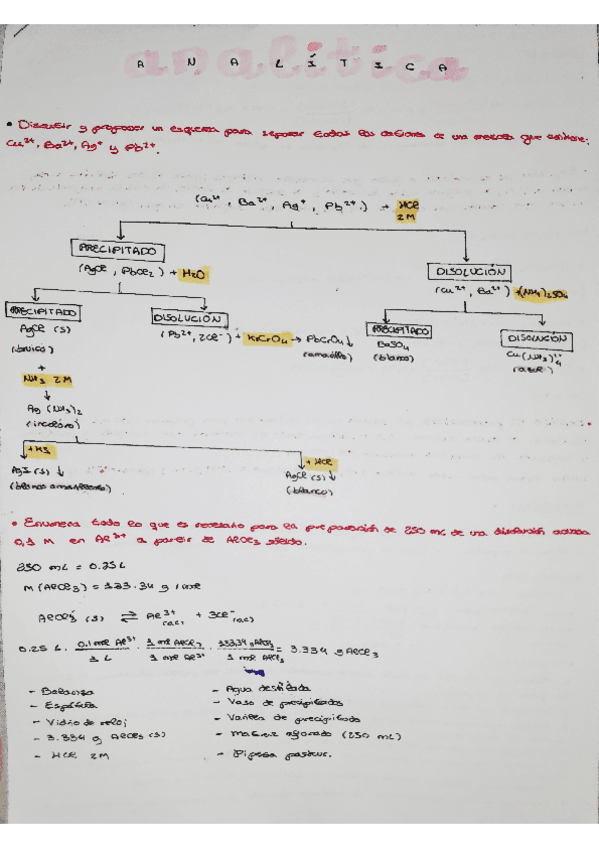 ANALÍTICA
• Discutir y proponer un esquema para separar todos los cationes de una mezcla que contiene:
Cu²⁺, Ba²⁺, Ag⁺ y Pb²⁺.
(Cu²⁺, Ba²⁺, Ag⁺, Pb²⁺) + HCl 2M
PRECIPITADO
(AgCl, PbCl₂) + H₂O
DISOLUCIÓN
(Cu²⁺, Ba²⁺) + (NH₄)₂SO₄
PRECIPITADO
AgCl (s)
(blanco)
+
NH₃ 2M
Ag(NH₃)₂
(incoloro)
DISOLUCIÓN
(Pb²⁺, 2Cl⁻) + KrCrO₄ → PbCrO₄↓
(amarillo)
PRECIPITADO
BaSO₄
(blanco)
DISOLUCIÓN
Cu(NH₃)₄
(azul)
+KI
AgI (s) ↓
(blanco amarillento)
+ HCl
AgCl (s) ↓
(blanco)
• Enumera todo lo que es necesario para la preparación de 250 mL de una disolución acuosa
0,1 M en Al³⁺ a partir de AlCl₃ sólido.
250 mL = 0.25L
M(AlCl₃) = 133.34 g/mol
AlCl₃ (s) ⇌ Al³⁺(ac) + 3Cl⁻(ac)
0.25 L · 0.1 mol Al³⁺ / 1 L · 1 mol AlCl₃ / 1 mol Al³⁺ · 133.34 g AlCl₃ / 1 mol AlCl₃ = 3.334 g AlCl₃
- Balanza
- Espátula
- Vidrio de reloj
- 3.334 g AlCl₃ (s)
- HCl 2M
- Agua destilada
- Vaso de precipitados
- Varilla de precipitado
- Matraz aforado (250 mL)
- Pipeta pasteur.